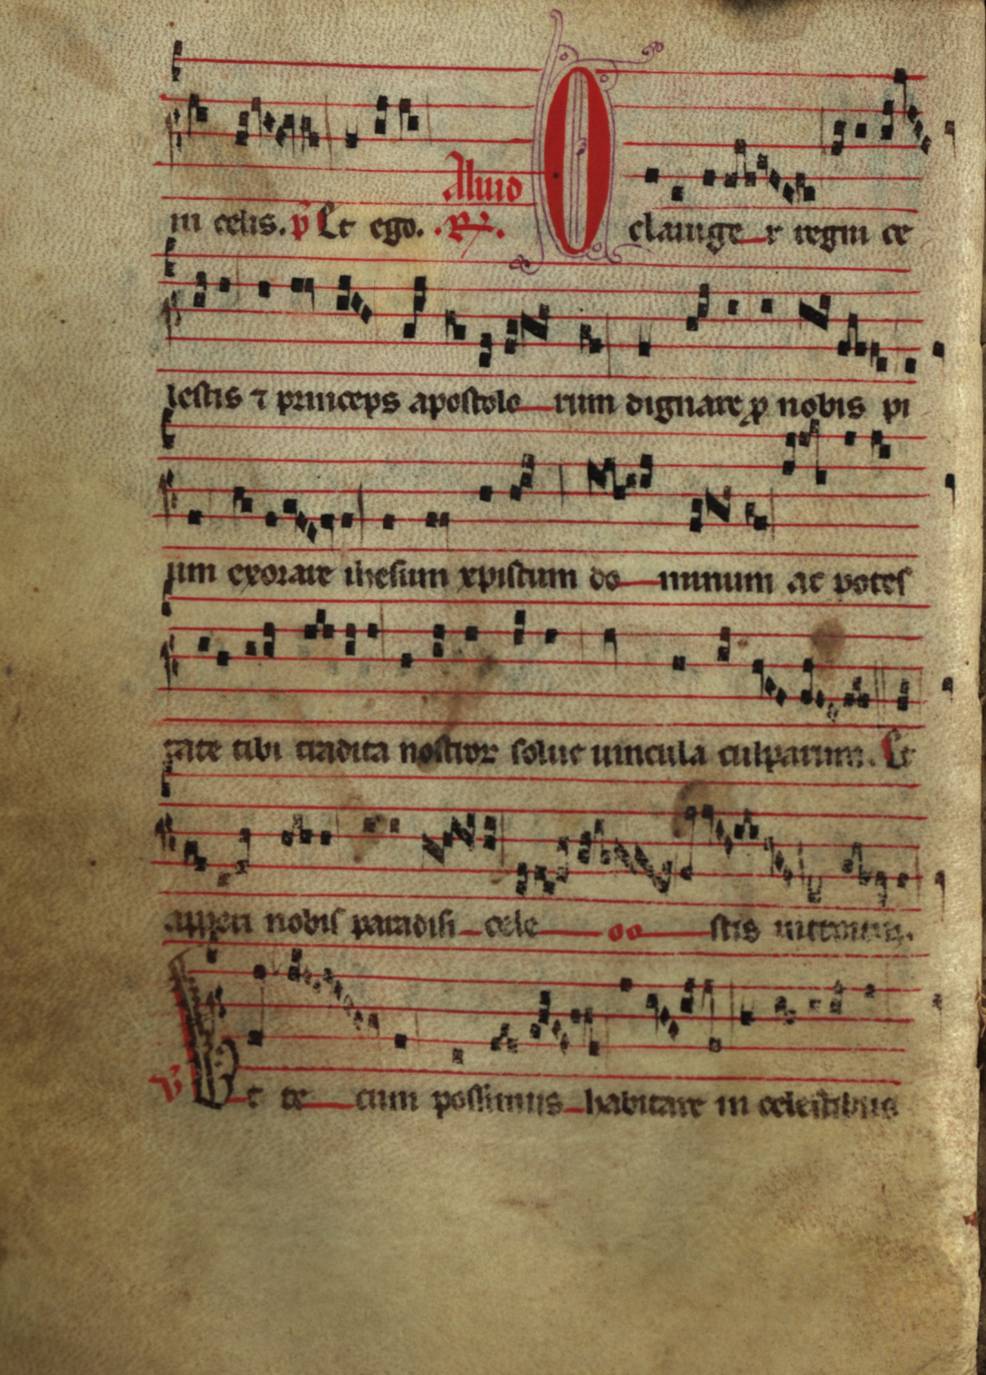 in celis. p̄ Et ego. Aliud .R̷. O clauige r regni ce
lestis ⁊ princeps apostolo rum dignare ꝓ nobis pi
um exorare ihesum xpistum do minum ac potes
tate tibi tradita nostror solue uincula culparum. Et
apperi nobis paradisi cele stis introitum.
V̷ Et te cum possimus habitare in celestibus